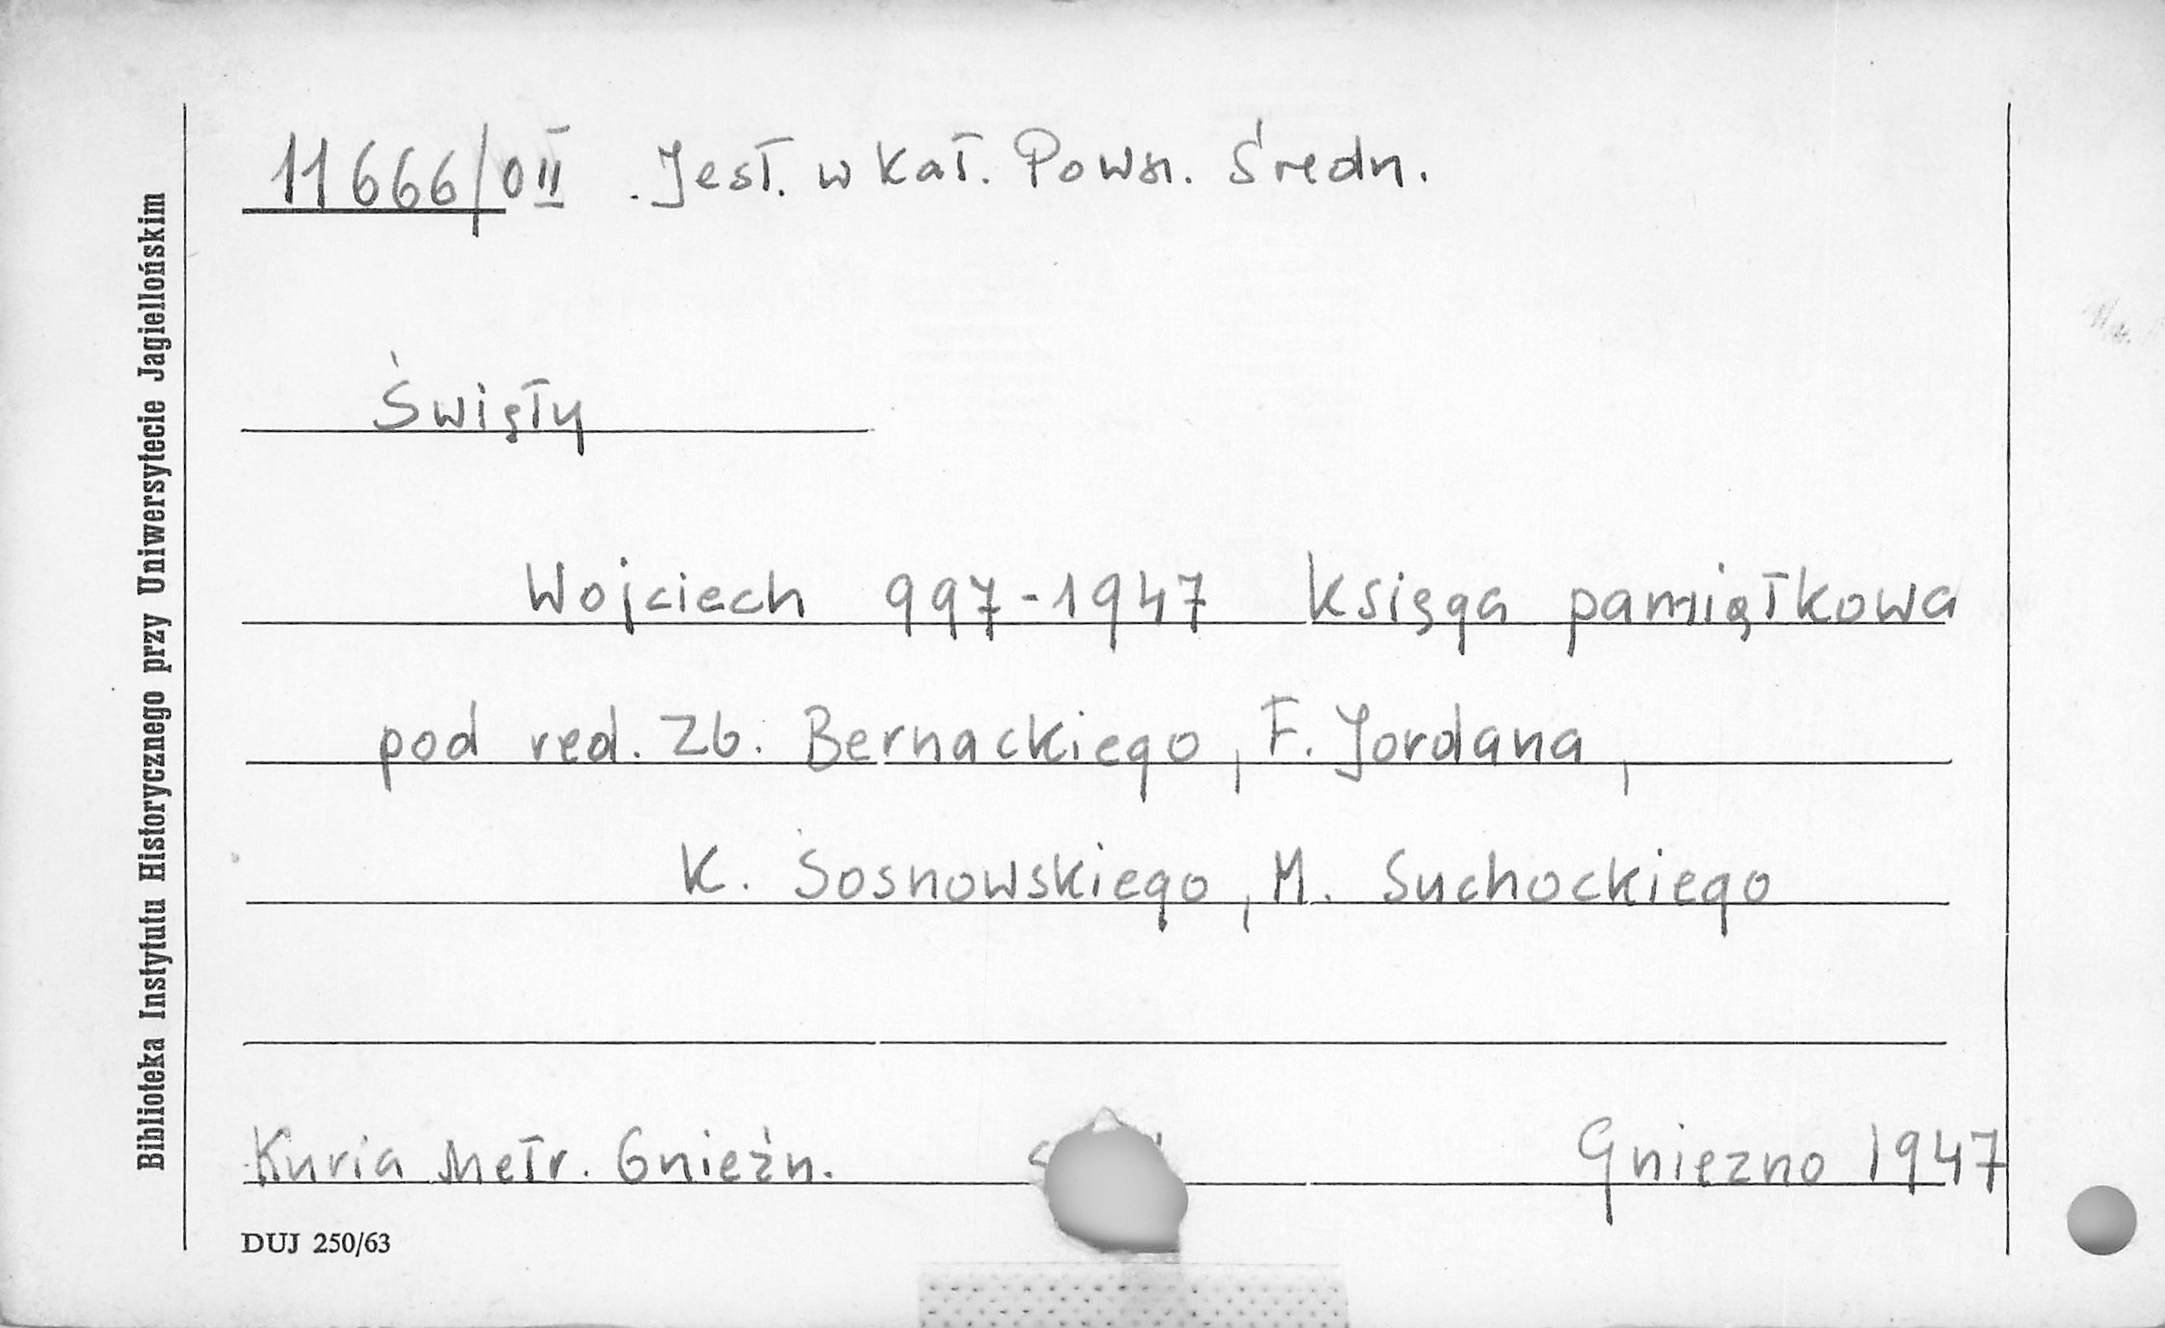 11666/0II . Jest. w Kat. Pows. Średn.
Święty
Wojciech 997-1947 Księga pamiątkowa
pod red. Zb. Bernackiego, F. Jordana,
K. Sosnowskiego, M. Suchockiego
Kuria Metr. Gnieźn.
Gniezno 1947
DUJ 250/63
Biblioteka Instytutu Historycznego przy Uniwersytecie Jagiellońskim